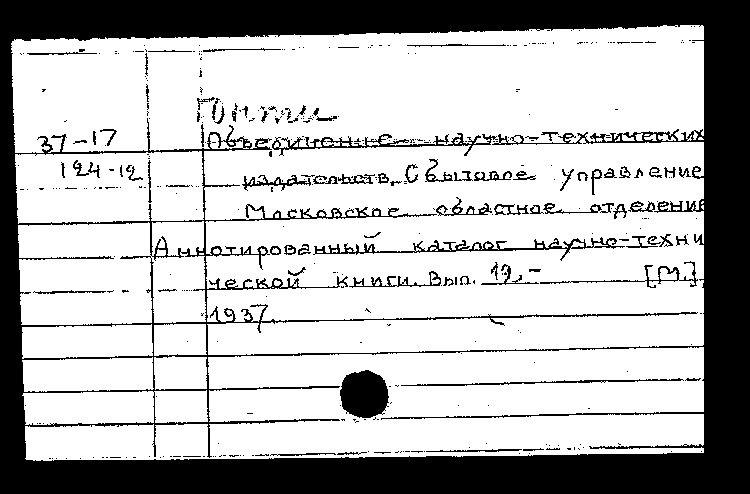 Гонти
37-17 Объединение научно-технических
124-12 издательств. Сбытовое управление
Московское областное отделение
Аннотированный каталог научно-техни
ческой книги. Вып. 19,- [М.],
1937.